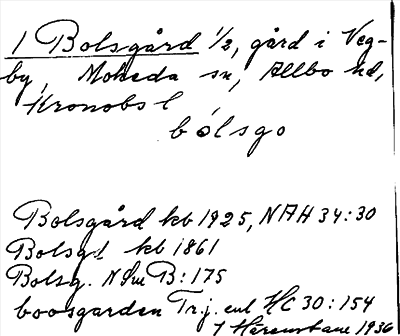 1 Bolsgård 1/2, gård i Veg-
by, Moheda sn, Allbo hd,
Kronobs l
bólsgo
Bolsgård kb 1925, NAH 34:30
Bolsgd kb 1861
Bolsg. NSm B:175
boosgarden Tr.j. enl HC 30:154
1936